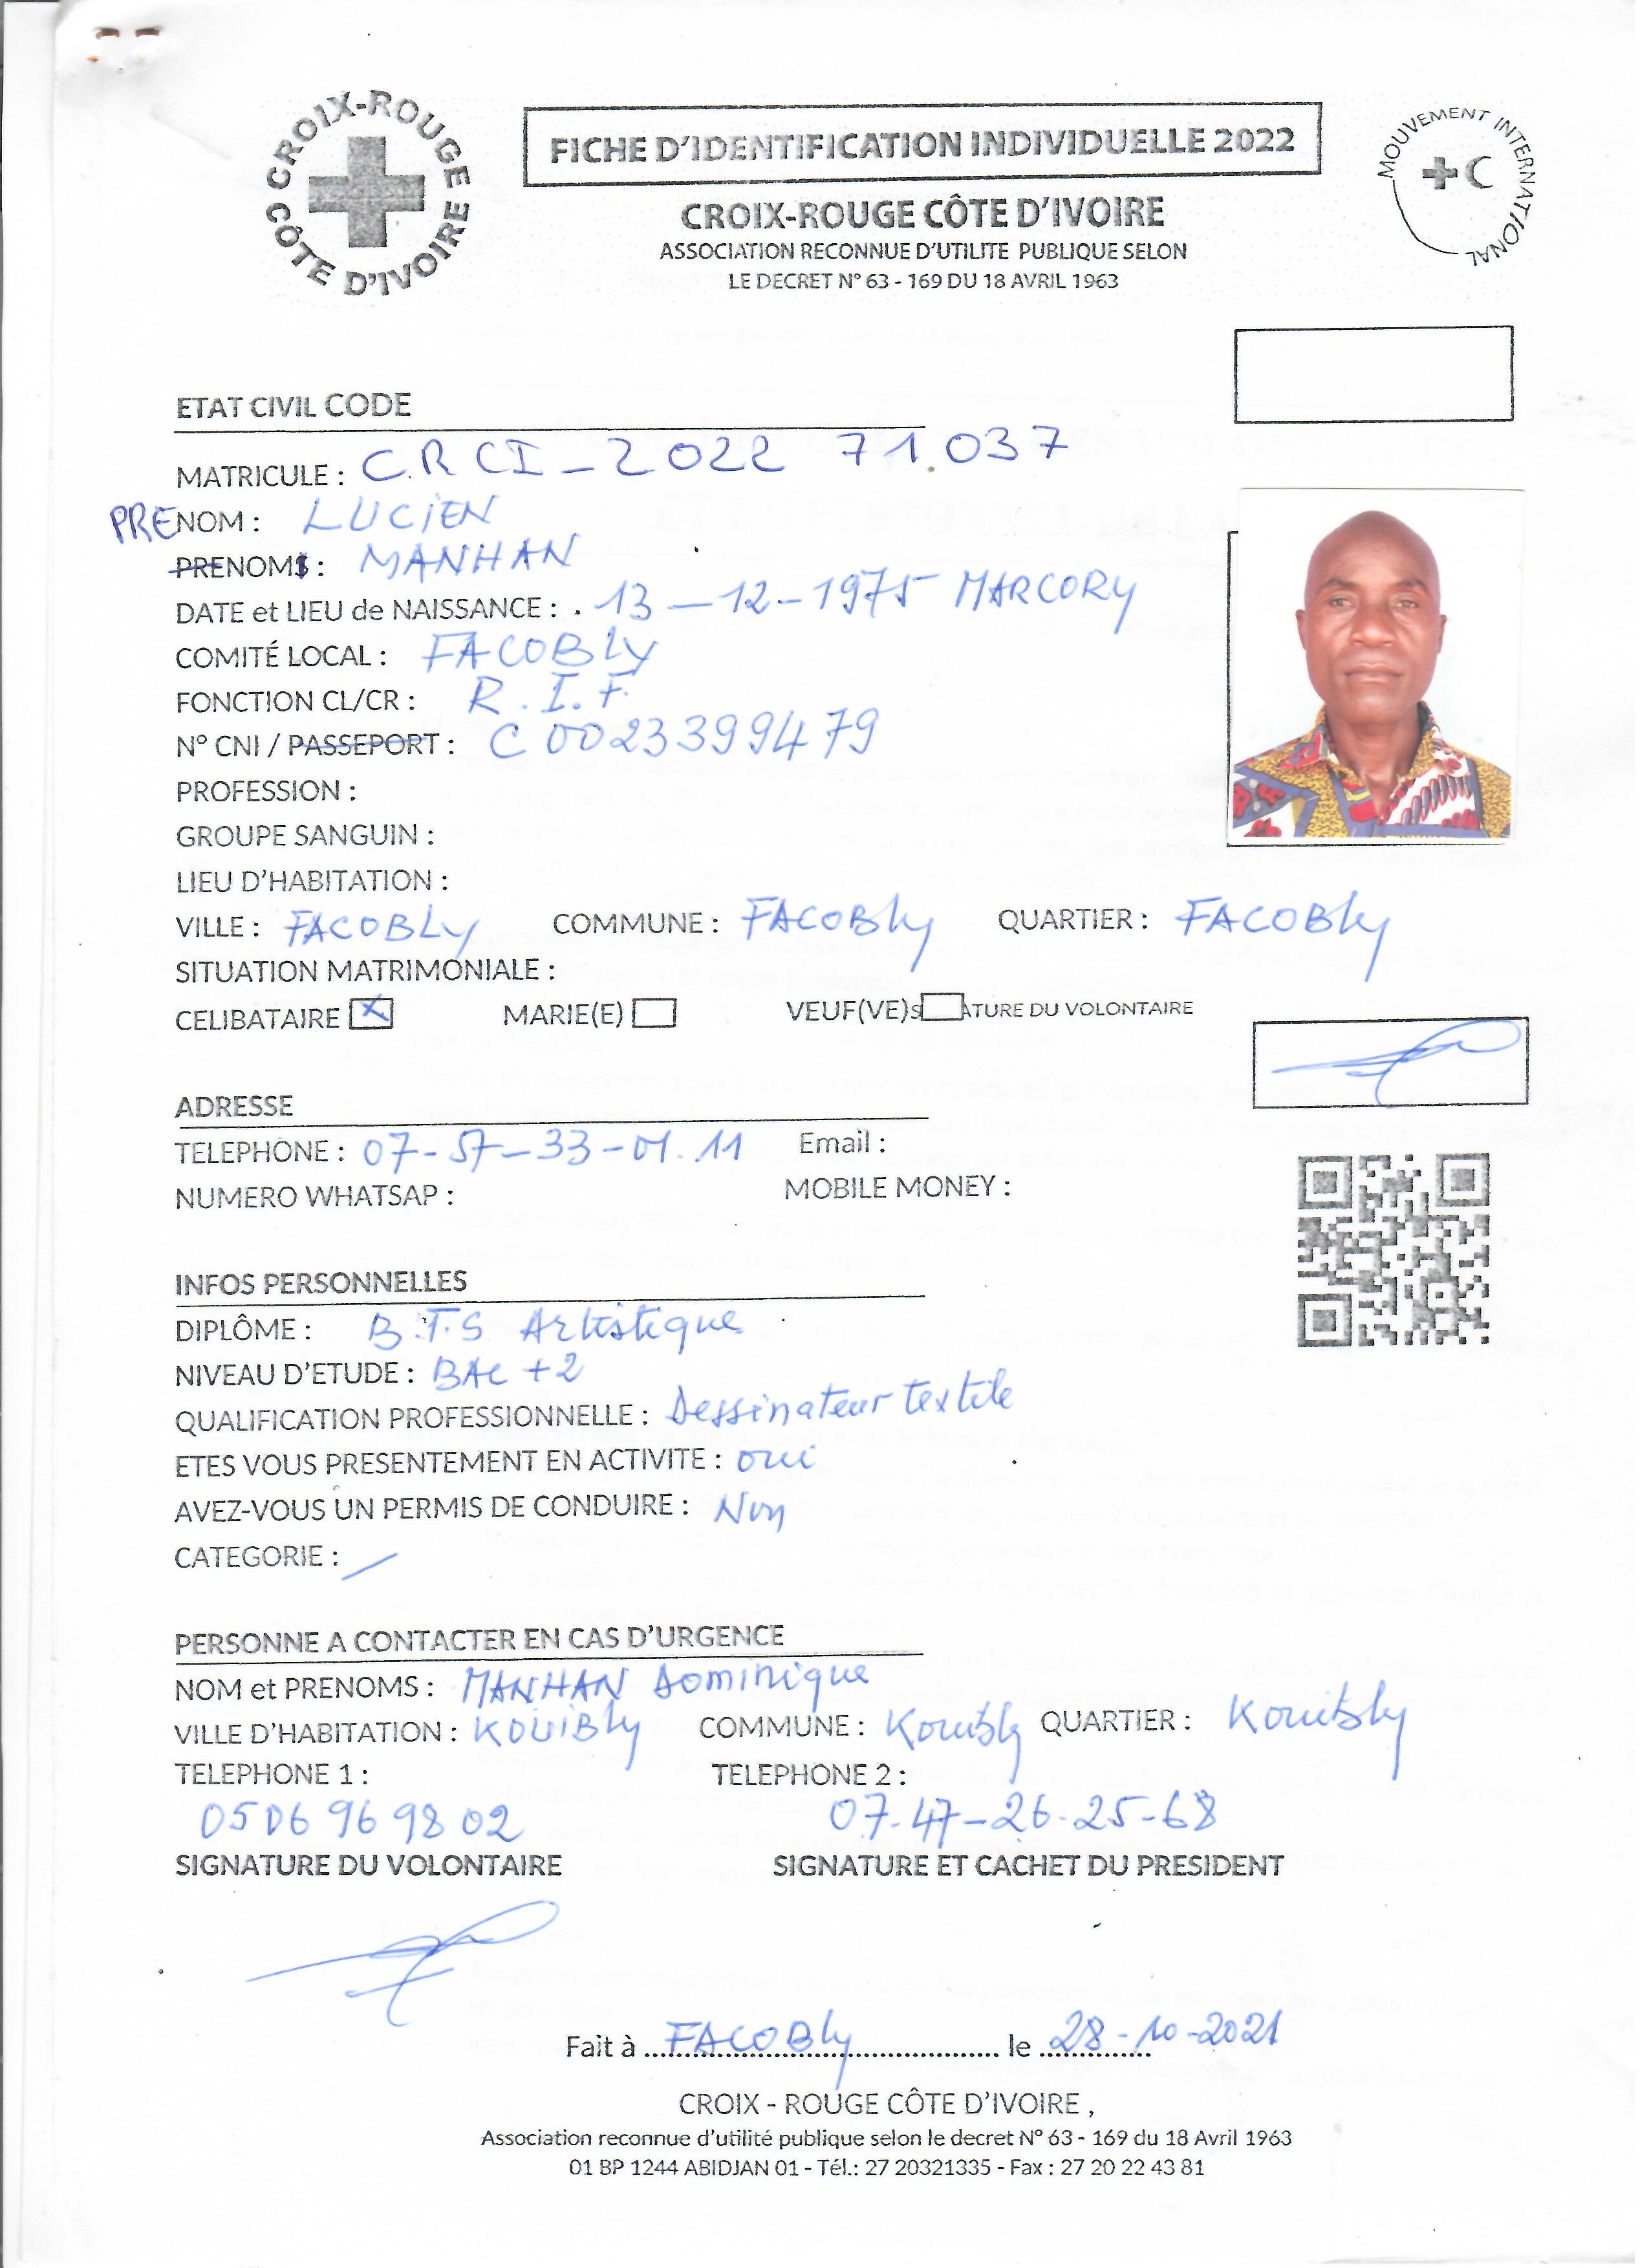 CROIX-ROUGE CÔTE D'IVOIRE
FICHE D'IDENTIFICATION INDIVIDUELLE 2022
MOUVEMENT INTERNATIONAL
CROIX-ROUGE CÔTE D'IVOIRE
ASSOCIATION RECONNUE D'UTILITE PUBLIQUE SELON
LE DECRET N° 63 - 169 DU 18 AVRIL 1963
ETAT CIVIL CODE
MATRICULE : C.R CI_2022 71.037
PRENOM : LUCIEN
PRENOMS : MANHAN
DATE et LIEU de NAISSANCE : . 13 _ 12 - 1975 MARCORY
COMITÉ LOCAL : FACOBLY
FONCTION CL/CR : R.I.F.
N° CNI / PASSEPORT : C 0023399479
PROFESSION :
GROUPE SANGUIN :
LIEU D'HABITATION :
VILLE : FACOBLY COMMUNE : FACOBly QUARTIER : FACOBly
SITUATION MATRIMONIALE :
CELIBATAIRE X MARIE(E) VEUF(VE)S ATURE DU VOLONTAIRE
ADRESSE
TELEPHONE : 07-57-33-01.11 Email :
NUMERO WHATSAP : MOBILE MONEY :
INFOS PERSONNELLES
DIPLÔME : B.T.S Artistique
NIVEAU D'ETUDE : BAC +2
QUALIFICATION PROFESSIONNELLE : Dessinateur textile
ETES VOUS PRESENTEMENT EN ACTIVITE : oui
AVEZ-VOUS UN PERMIS DE CONDUIRE : Non
CATEGORIE : /
PERSONNE A CONTACTER EN CAS D'URGENCE
NOM et PRENOMS : MANHAN Dominique
VILLE D'HABITATION : KOUIBly COMMUNE : Kouibly QUARTIER : Kouibly
TELEPHONE 1 : TELEPHONE 2 :
05 06 96 98 02 07-47-26-25-68
SIGNATURE DU VOLONTAIRE SIGNATURE ET CACHET DU PRESIDENT
Fait à FACOBly le 28-10-2021
CROIX - ROUGE CÔTE D'IVOIRE ,
Association reconnue d'utilité publique selon le decret N° 63 - 169 du 18 Avril 1963
01 BP 1244 ABIDJAN 01 - Tél.: 27 20321335 - Fax : 27 20 22 43 81